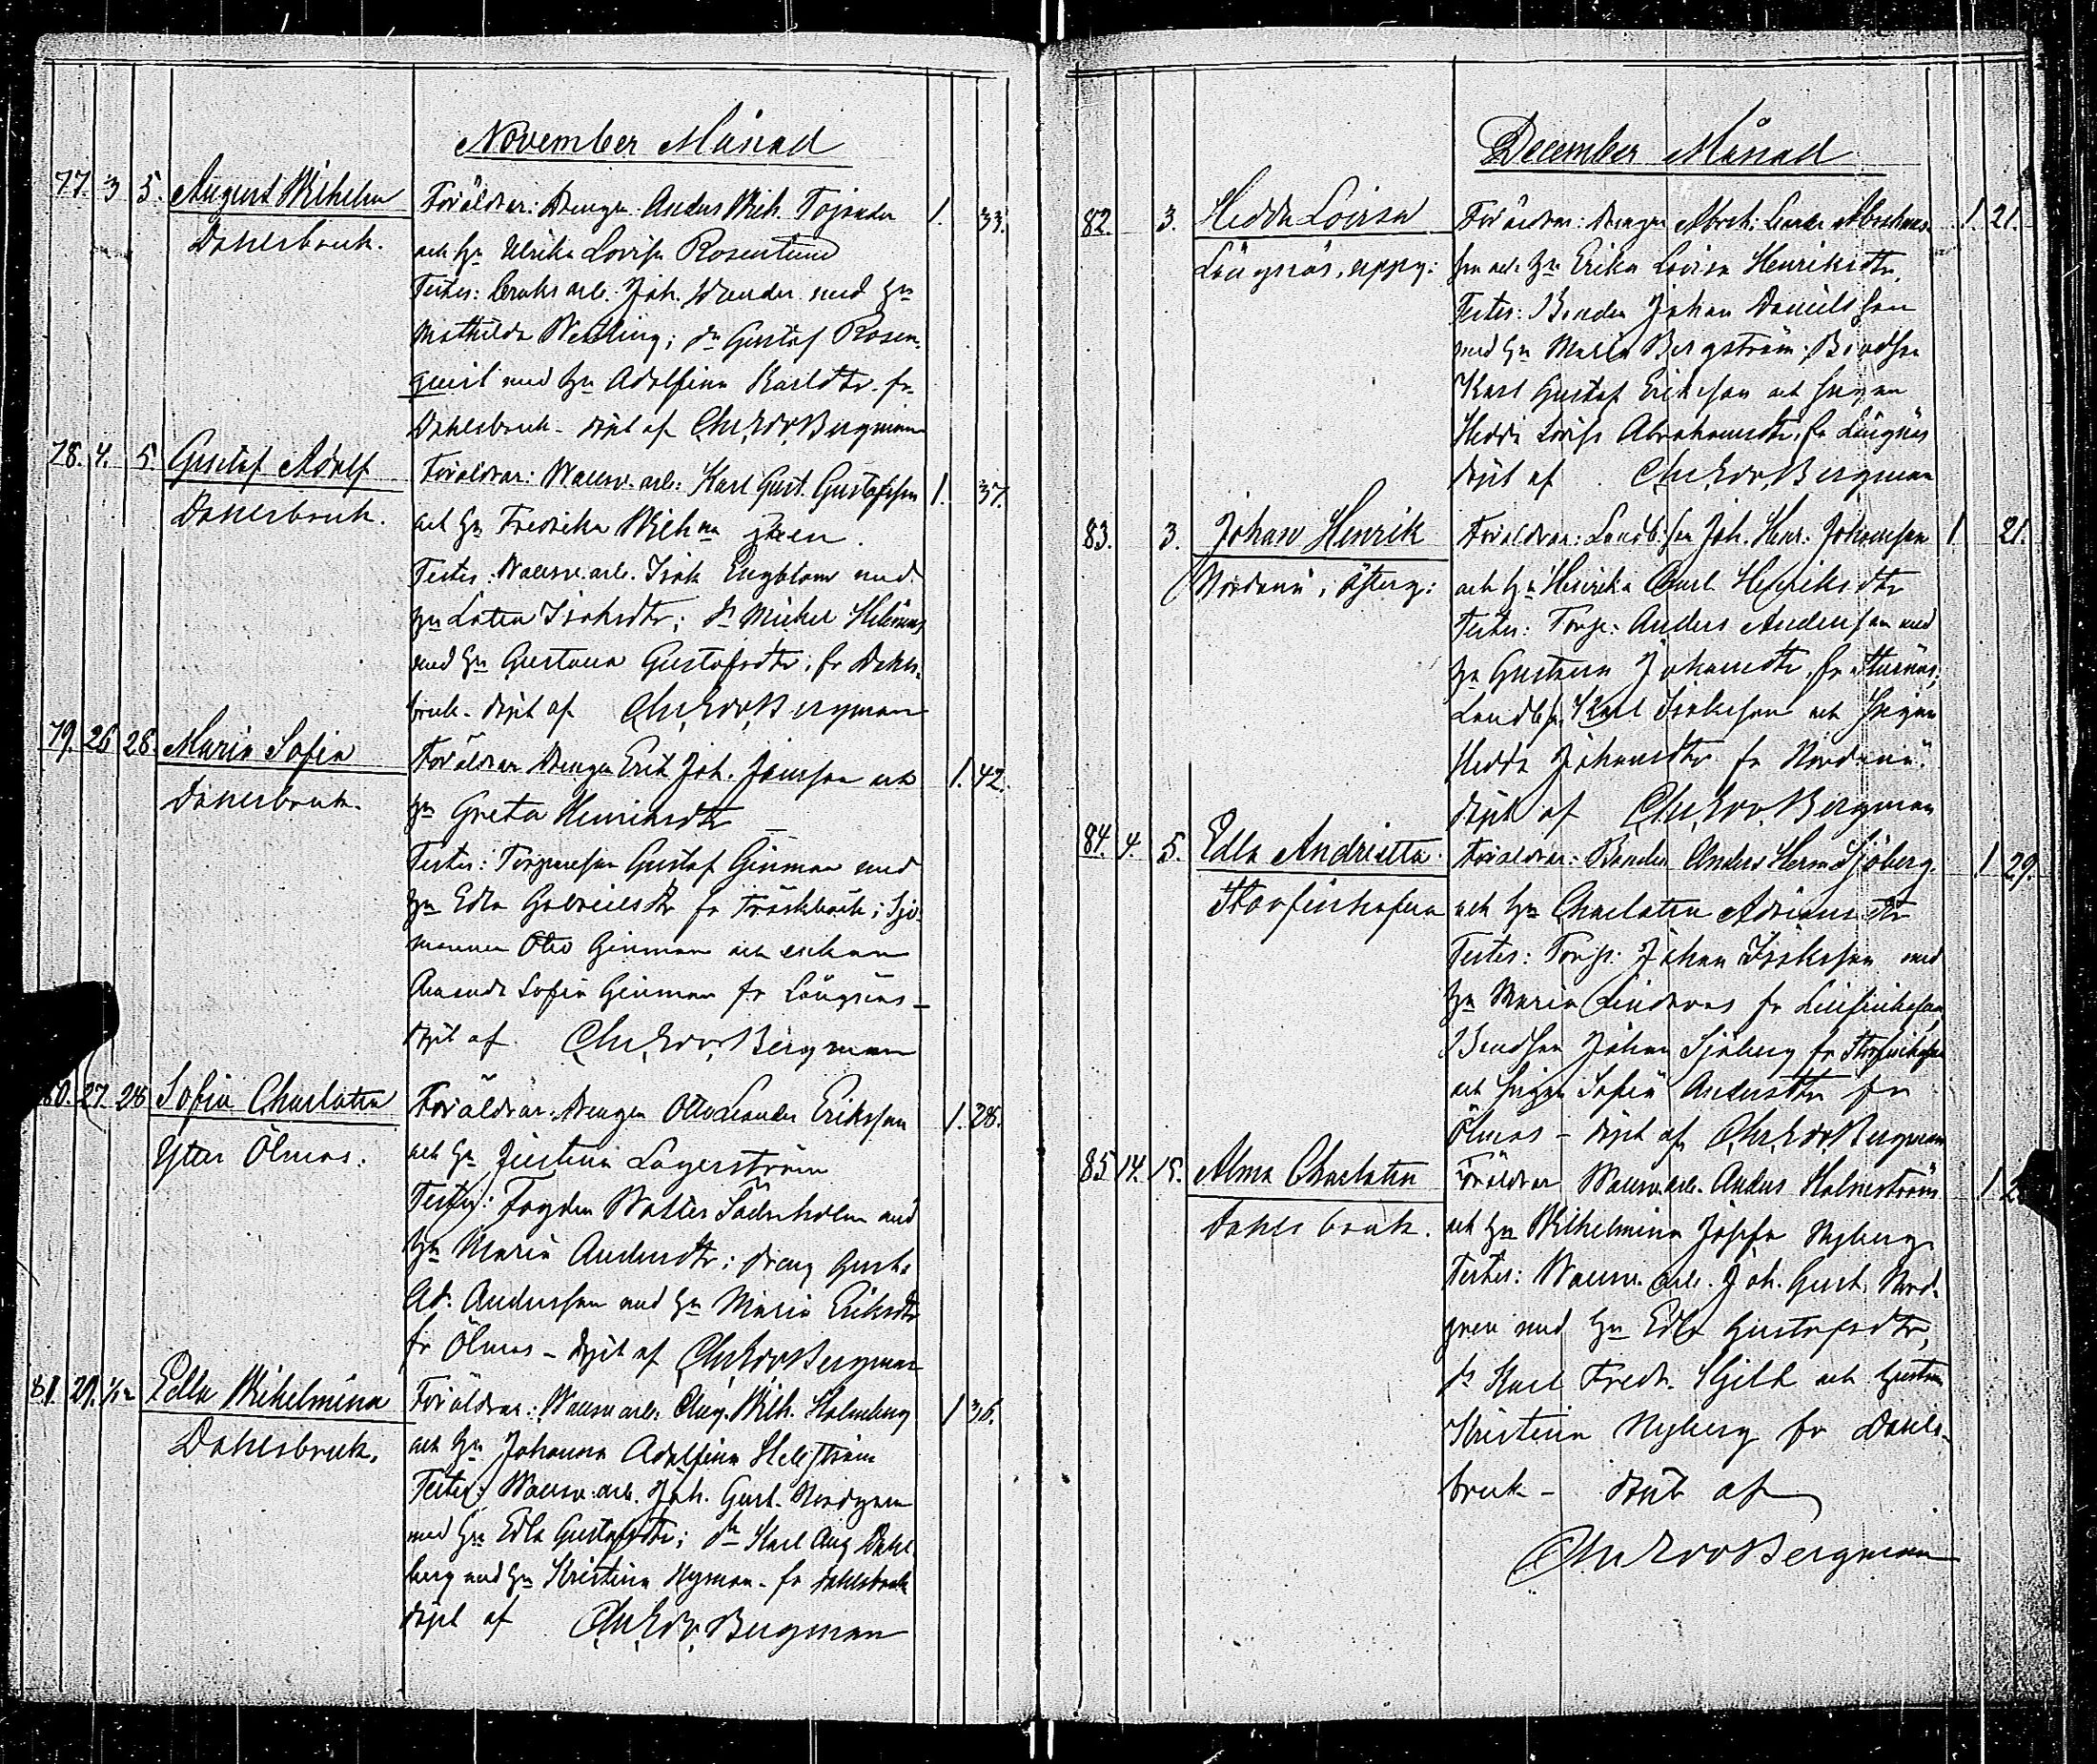 November Månad
77. 3 5. August Wilhelm
Dahlsbruk.
Föräldrar: Drengen Anders Wilh. Töjander 1. 33.
och hu Ulrika Lovisa Rosenlund
Testes: Bruks arb. Joh. Wender med hu
Mathilda Wedling; dn Gustaf Rosen-
quist med hu Adolfina Karlsdtr. fr.
Dahlsbruk - döpt af Chr. Edv. Bergman
78. 4. 5 Gustaf Adolf
Dahlsbruk.
Föräldrar: Walsv. arb: Karl Gust. Gustafsson 1. 37.
och hu Fredrika Wilhna
Testes: Walsv. arb. Isak Engblom med
hu Isaksdtr; dn Mickel Helenius
med hu Gustava Gustafsdtr; fr Dahls-
bruk. döpt af Chr. Edv. Bergman
79. 26 28. Maria Sofia
Dahlsbruk.
Föräldrar Drengen Erik Joh. Jansson och 1. 42.
hu Greta Henriksdtr
Testes: Torparesson Gustaf Ginman med
hu Edla Gabrielsdtr fr Träskbäck; Sjö-
mannen Otto Ginman och enkan
Amanda Sofia Ginman fr Långnäs -
döpt af Chr. Edv. Bergman
80. 27. 28 Sofia Charlotta
Ytter Ölmos.
Föräldrar: Drengen Otto Leander Eriksson 1. 28.
och hu Justina Lagerström
Testes: Fogden Söderholm med
hu Maria Andersdtr; dreng Gust.
Ad. Andersson med hu Maria Eriksdtr
fr Ölmos - döpt af Chr. Edv. Bergman
81. 29. 1/12 Edla Wilhelmina
Dahlsbruk.
Föräldrar: Walsv. arb: Aug. Wilh. Holmberg 1 36.
och hu Johanna Adolfina Hellström
Testes: Walsv. arb. Joh. Gust. Nordgren
med hu Edla Gustafsdtr; dn Karl Aug Dahl-
berg med hu Kristina Nyman - fr Dahlsbruk
döpt af Chr. Edv. Bergman
December Månad
82. 3. Hedda Lovisa
Långnäs, uppg:
Föräldrar: Drengen Abrah: Leander Abrahams- 1. 21.
son och hu Erika Lovisa Henriksdtr.
Testes: Bonden Johan Danielsson
med hu Maria Bergström; Bondson
Karl Gustaf Eriksson och pigan
Hedda Lovisa Abrahamsdtr, fr Långnäs
döpt af Chr. Edv. Bergman
83. 3. Johan Henrik
Nordanå, Österg:
Föräldrar: Landb. son Joh. Henr. Johansson 1. 21.
och hu Henrika Carl. Henriksdtr
Testes: Torp: Anders Andersson med
hu Gustava Johansdtr, fr
Landb. Karl Isaksson och pigan
Hedda Johansdtr fr Nordanå.
döpt af Chr. Edv. Bergman
84. 4. 5. Edla Andrietta
Storfinhofva
Föräldrar: Bonden Anders Herm Sjöberg. 1 29.
och hu Charlotta Adriansdtr
Testes: Torp: Johan Isaksson med
hu Maria Lindroos fr Lillfinhofva
Bondson Johan Sjöberg fr Storfinhofva
och pigan Sofia Andersdtr fr
Ölmos - döpt af Chr. Edv. Bergman
85 14. 15. Alma Charlotta
Dahls bruk.
Föräldrar Walsv. arb. Anders Holmström 1 2
och hu Wilhelmina Josefa Nyberg
Testes: Walsv. arb. Joh. Gust. Nord-
gren med hu Edla Gustafsdtr,
dn Karl Fredr. och
Kristina Nyberg fr Dahls-
bruk - döpt af
Chr Edv Bergman